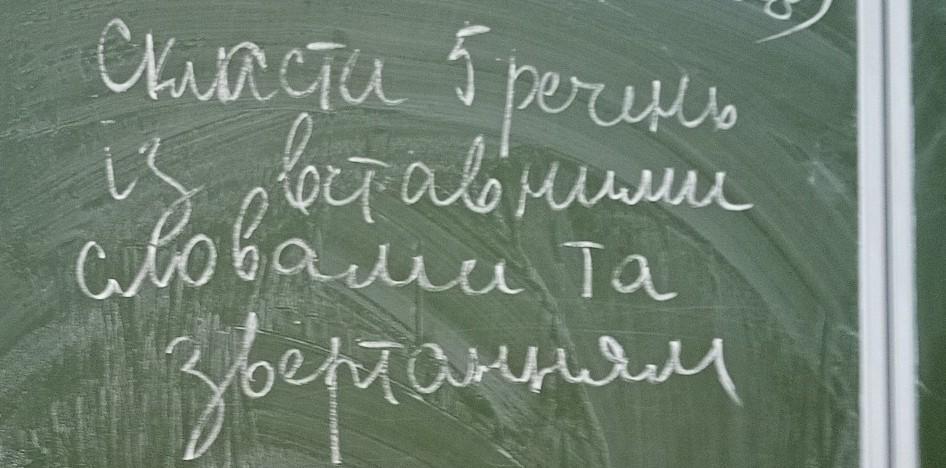 Скласти 5 речень
із вставними
словами та
звертанням